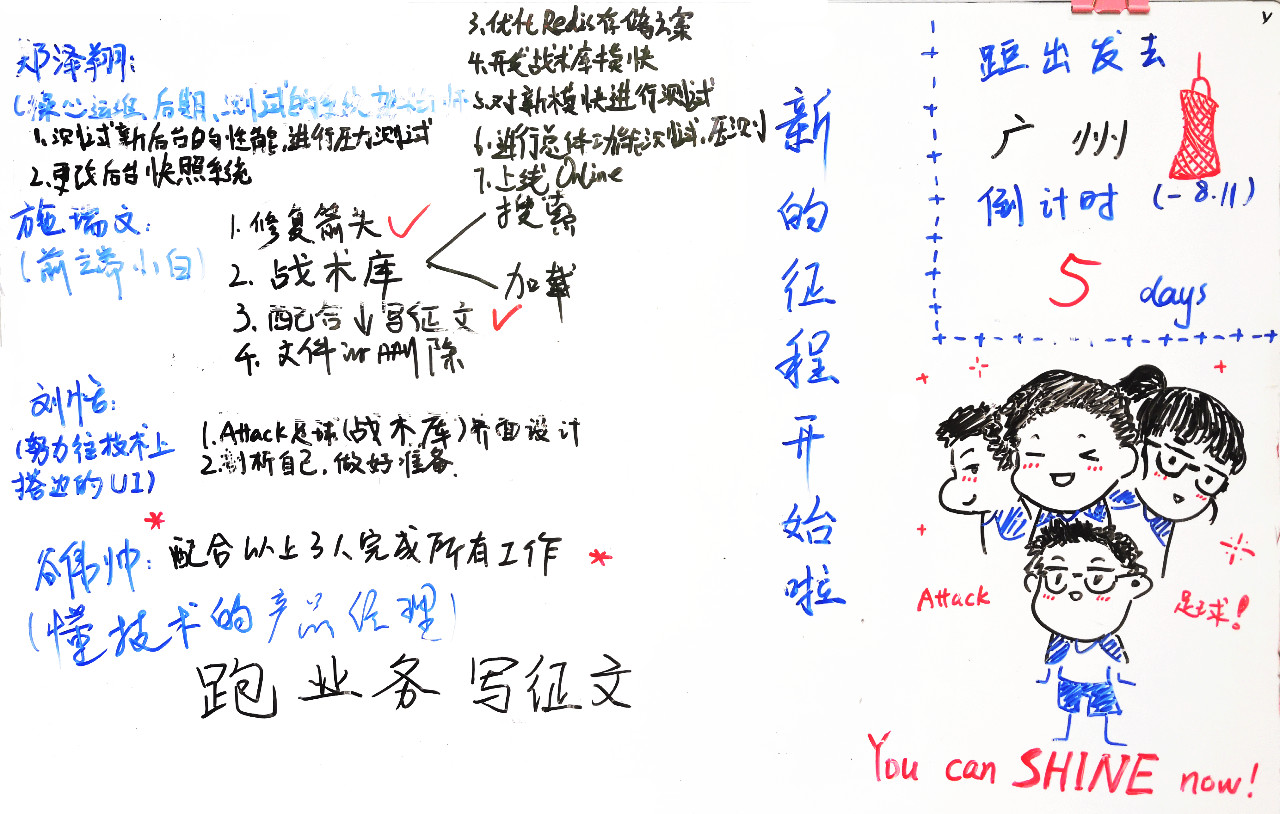 邓泽翔:
(操心运维、后期、测试的系统架构师
1.测试新后台的性能,进行压力测试
2.更改后台快照系统
3.优化Redis存储方案
4.开发战术库模快
5.对新模快进行测试
6.进行总体功能测试,压测
7.上线Online
施瑞文:
(前端小白)
1.修复箭头
2.战术库
搜索
加载
3.配合写征文
4.文件
除
刘恬:
(努力往技术上
搭边的UI)
1.Attack足球(战术库)界面设计
2.剖析自己,做好准备.
谷伟帅:配合以上3人完成所有工作
(懂技术的产品经理)
跑业务 写征文
新的征程开始啦
距出发去
广州
倒计时(-8.11)
5 days
Attack
足球!
You can SHINE now!